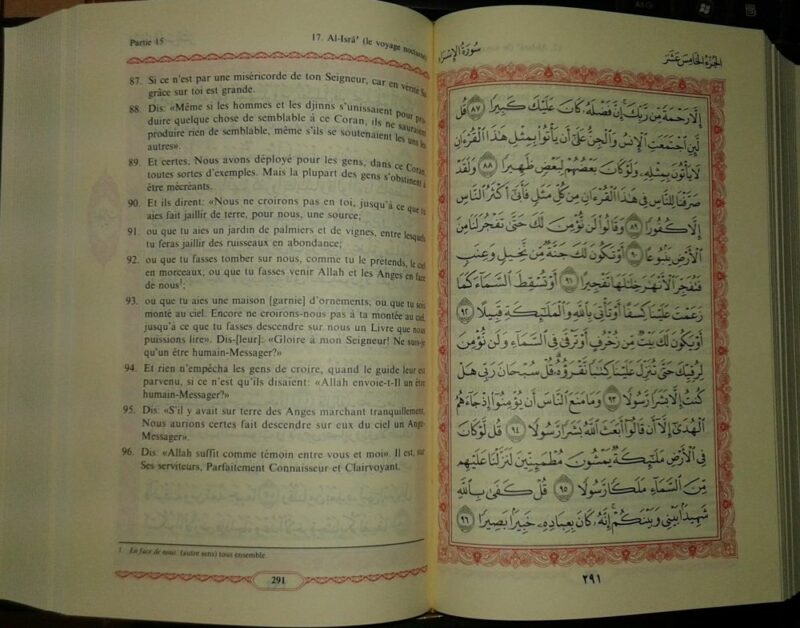 Partie 15
17. Al-Isrâ' (le voyage nocturne)
87. Si ce n'est par une miséricorde de ton Seigneur, car en vérité Sa
grâce sur toi est grande.
88. Dis: «Même si les hommes et les djinns s'unissaient pour pro-
duire quelque chose de semblable à ce Coran, ils ne sauraient
produire rien de semblable, même s'ils se soutenaient les uns les
autres».
89. Et certes, Nous avons déployé pour les gens, dans ce Coran,
toutes sortes d'exemples. Mais la plupart des gens s'obstinent à
être mécréants.
90. Et ils dirent: «Nous ne croirons pas en toi, jusqu'à ce que tu
aies fait jaillir de terre, pour nous, une source;
91. ou que tu aies un jardin de palmiers et de vignes, entre lesquels
tu feras jaillir des ruisseaux en abondance;
92. ou que tu fasses tomber sur nous, comme tu le prétends, le ciel
en morceaux, ou que tu fasses venir Allah et les Anges en face
de nous¹;
93. ou que tu aies une maison [garnie] d'ornements; ou que tu sois
monté au ciel. Encore ne croirons-nous pas à ta montée au ciel,
jusqu'à ce que tu fasses descendre sur nous un Livre que nous
puissions lire». Dis-[leur]: «Gloire à mon Seigneur! Ne suis-je
qu'un être humain-Messager?»
94. Et rien n'empêcha les gens de croire, quand le guide leur est
parvenu, si ce n'est qu'ils disaient: «Allah envoie-t-Il un être
humain-Messager?»
95. Dis: «S'il y avait sur terre des Anges marchant tranquillement,
Nous aurions certes fait descendre sur eux du ciel un Ange-
Messager».
96. Dis: «Allah suffit comme témoin entre vous et moi». Il est, sur
Ses serviteurs, Parfaitement Connaisseur et Clairvoyant.
1. En face de nous: (autre sens) tous ensemble.
291
سُورَةُ الإِسْرَاء
الجُزْءُ الخَامِسَ عَشَرَ
إِلَّا رَحْمَةً مِّن رَّبِّكَ إِنَّ فَضْلَهُ كَانَ عَلَيْكَ كَبِيرًا ٨٧ قُل
لَّئِنِ ٱجْتَمَعَتِ ٱلْإِنسُ وَٱلْجِنُّ عَلَىٰ أَن يَأْتُوا۟ بِمِثْلِ هَٰذَا ٱلْقُرْءَانِ
لَا يَأْتُونَ بِمِثْلِهِ وَلَوْ كَانَ بَعْضُهُمْ لِبَعْضٍ ظَهِيرًا ٨٨ وَلَقَدْ
صَرَّفْنَا لِلنَّاسِ فِى هَٰذَا ٱلْقُرْءَانِ مِن كُلِّ مَثَلٍ فَأَبَىٰٓ أَكْثَرُ ٱلنَّاسِ
إِلَّا كُفُورًا ٨٩ وَقَالُوا۟ لَن نُّؤْمِنَ لَكَ حَتَّىٰ تَفْجُرَ لَنَا مِنَ
ٱلْأَرْضِ يَنۢبُوعًا ٩٠ أَوْ تَكُونَ لَكَ جَنَّةٌ مِّن نَّخِيلٍ وَعِنَبٍ
فَتُفَجِّرَ ٱلْأَنْهَٰرَ خِلَٰلَهَا تَفْجِيرًا ٩١ أَوْ تُسْقِطَ ٱلسَّمَآءَ كَمَا
زَعَمْتَ عَلَيْنَا كِسَفًا أَوْ تَأْتِىَ بِٱللَّهِ وَٱلْمَلَٰٓئِكَةِ قَبِيلًا ٩٢
أَوْ يَكُونَ لَكَ بَيْتٌ مِّن زُخْرُفٍ أَوْ تَرْقَىٰ فِى ٱلسَّمَآءِ وَلَن نُّؤْمِنَ
لِرُقِيِّكَ حَتَّىٰ تُنَزِّلَ عَلَيْنَا كِتَٰبًا نَّقْرَؤُهُۥ قُلْ سُبْحَانَ رَبِّى هَلْ
كُنتُ إِلَّا بَشَرًا رَّسُولًا ٩٣ وَمَا مَنَعَ ٱلنَّاسَ أَن يُؤْمِنُوٓا۟ إِذْ جَآءَهُمُ
ٱلْهُدَىٰٓ إِلَّآ أَن قَالُوٓا۟ أَبَعَثَ ٱللَّهُ بَشَرًا رَّسُولًا ٩٤ قُل لَّوْ كَانَ
فِى ٱلْأَرْضِ مَلَٰٓئِكَةٌ يَمْشُونَ مُطْمَئِنِّينَ لَنَزَّلْنَا عَلَيْهِم
مِّنَ ٱلسَّمَآءِ مَلَكًا رَّسُولًا ٩٥ قُلْ كَفَىٰ بِٱللَّهِ
شَهِيدًۢا بَيْنِى وَبَيْنَكُمْ إِنَّهُۥ كَانَ بِعِبَادِهِۦ خَبِيرًۢا بَصِيرًا ٩٦
٢٩١